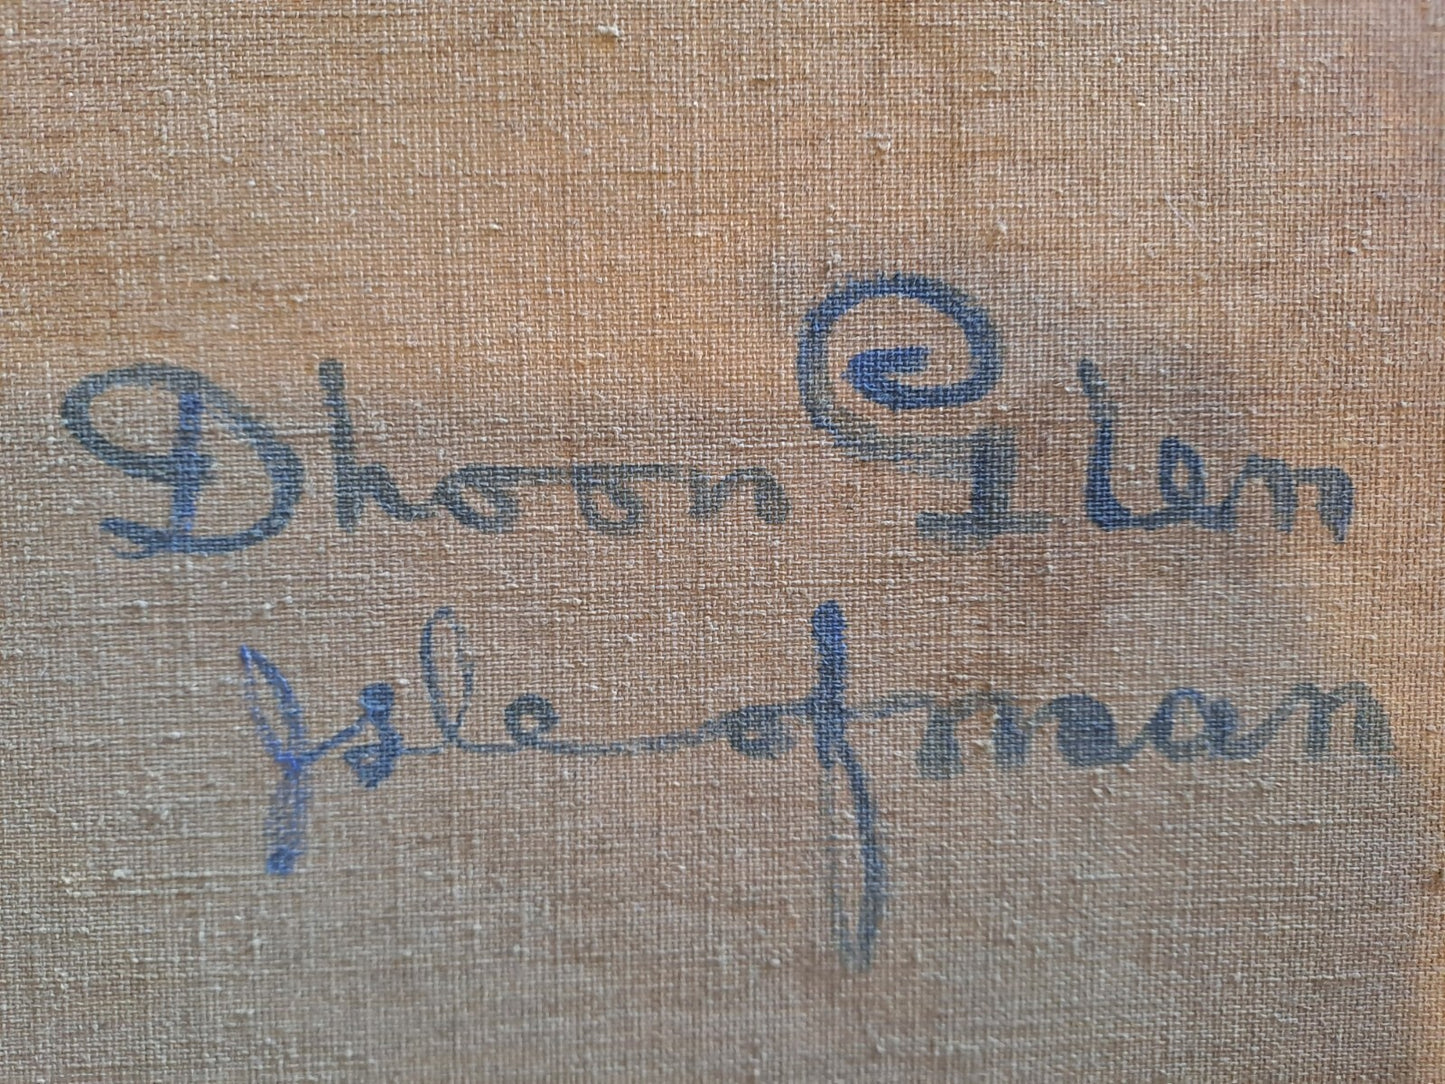 Dhoon Glen
Isle of man